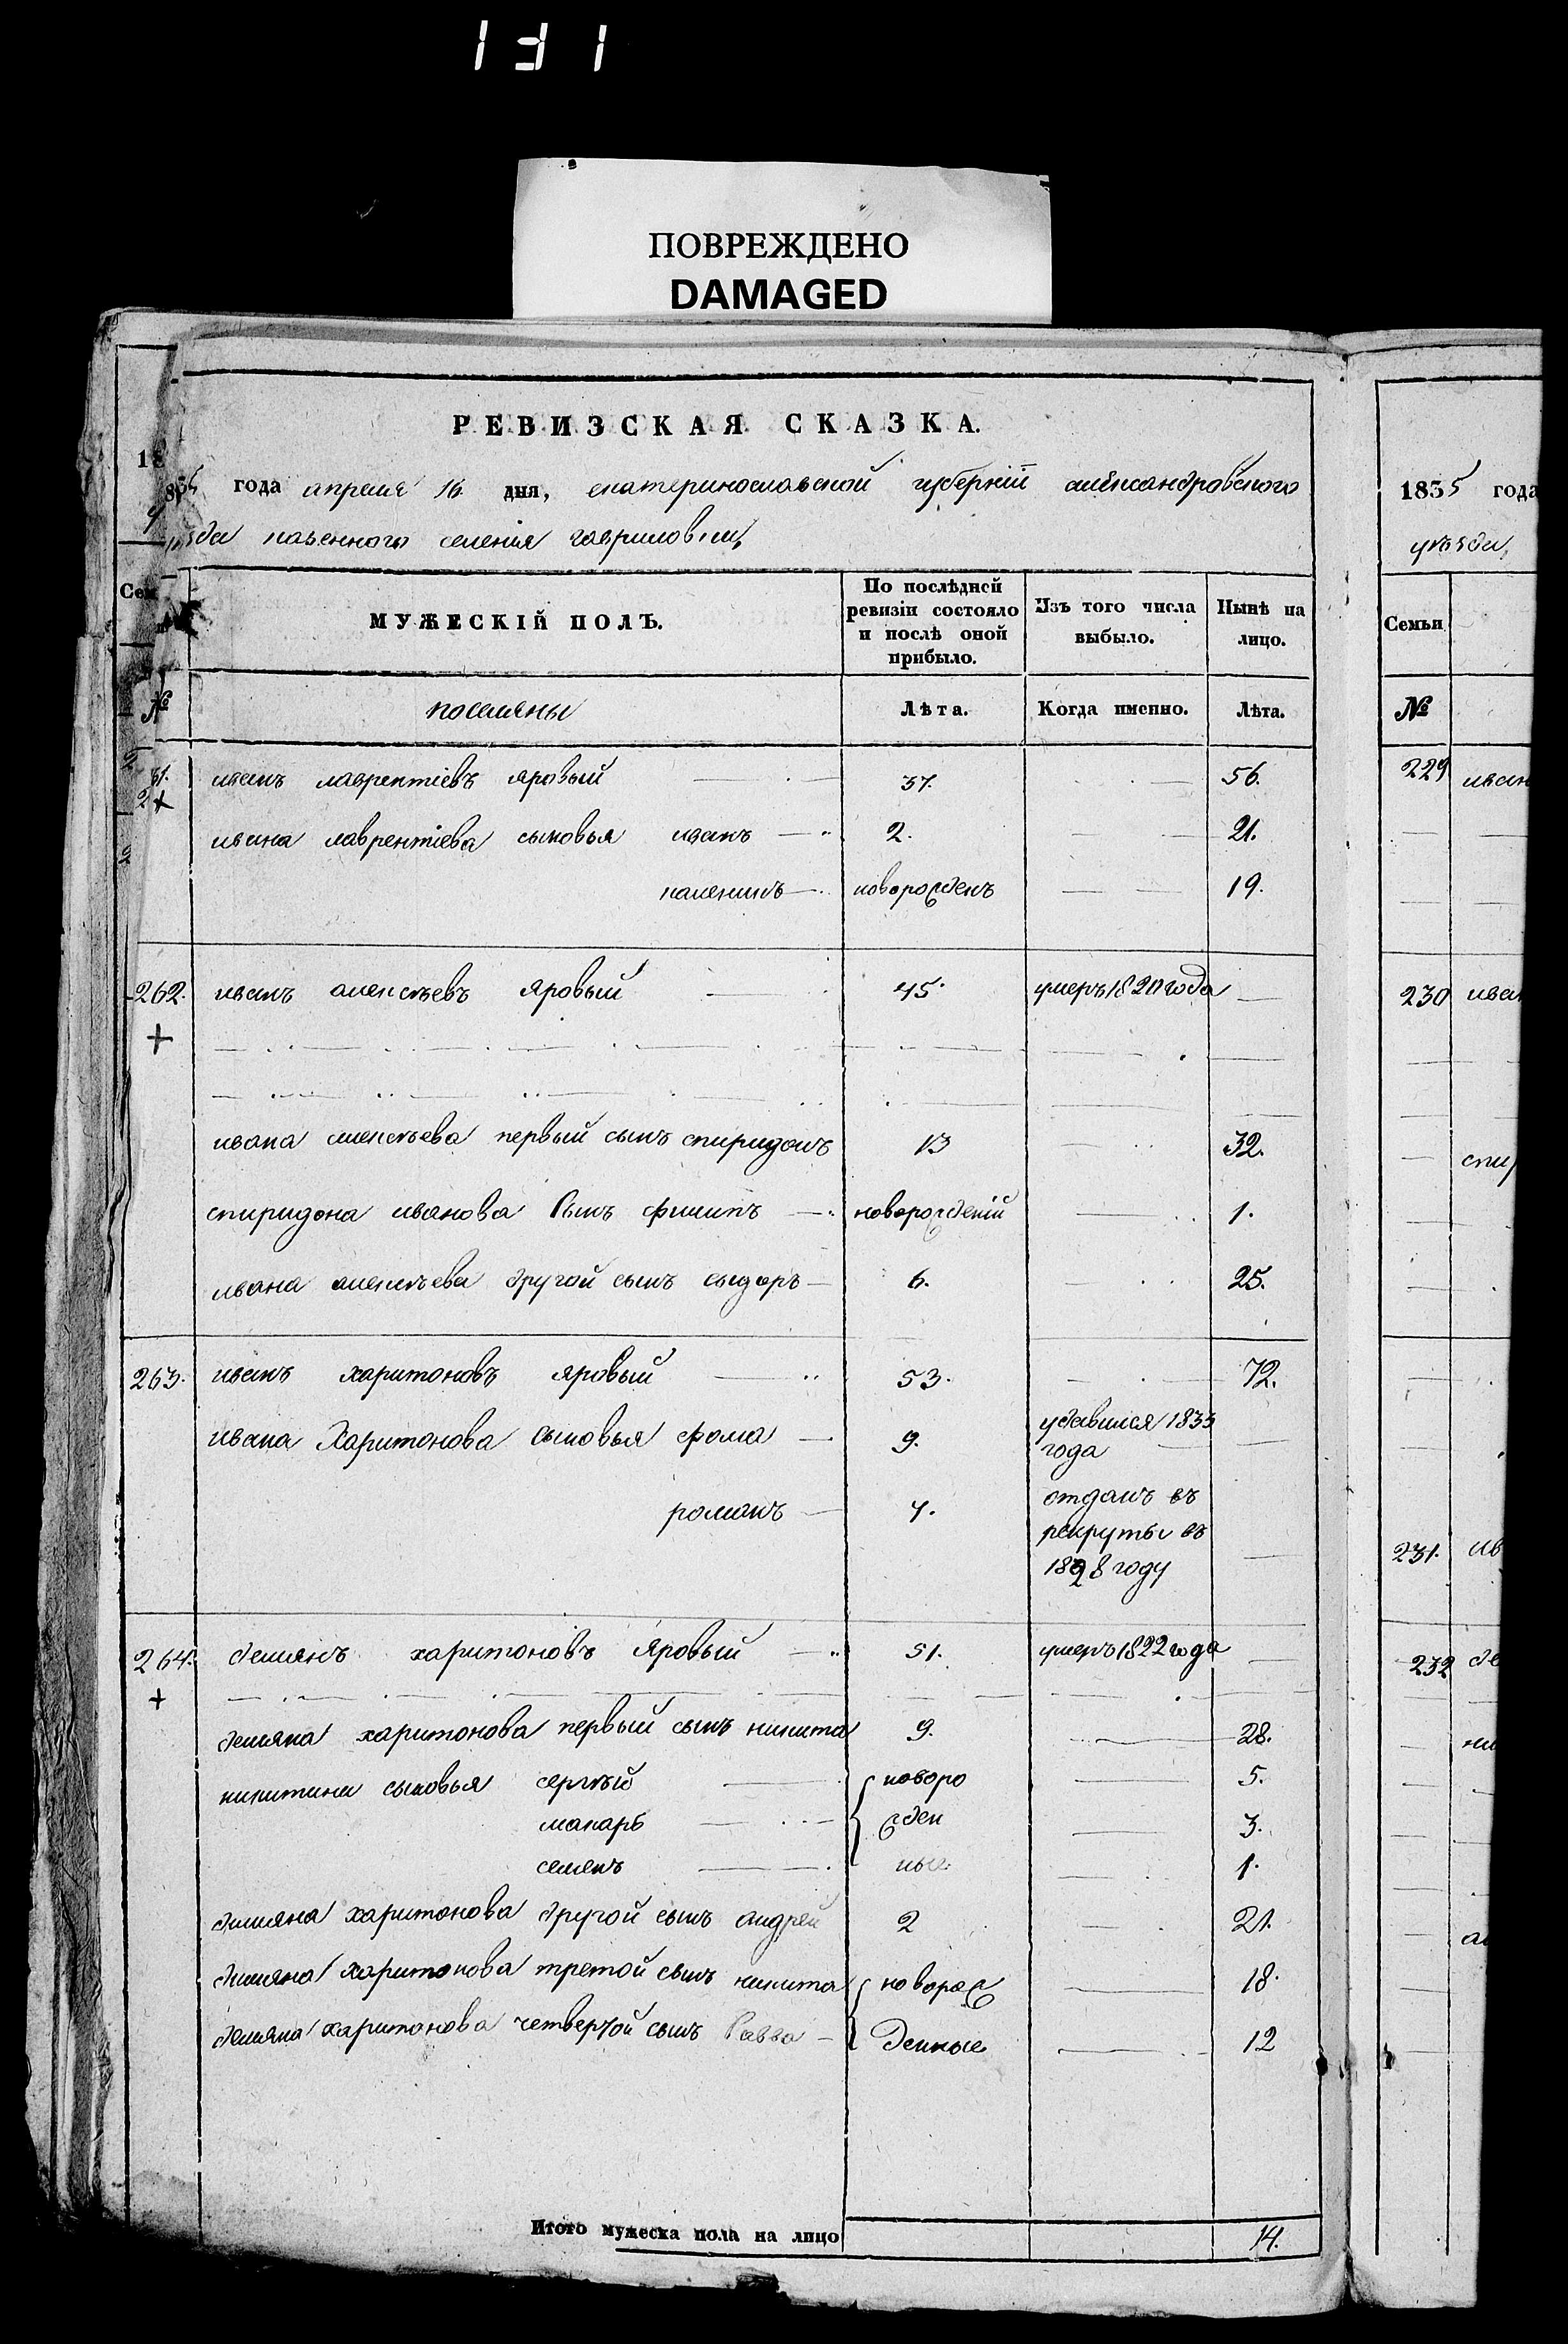 131
ПОВРЕЖДЕНО
DAMAGED
РЕВИЗСКАЯ СКАЗКА.
1835 года апреля 16 дня, екатеринославской губерніи александровского
уѣзда казенного селенія гавриловки,
МУЖЕСКІЙ ПОЛЪ. По послѣдней ревизіи состояло и послѣ оной прибыло. Изъ того числа выбыло. Нынѣ на лицо.
№ поселяны Лѣта. Когда именно. Лѣта.
иванъ лаврентіевъ яровый 37. 56.
ивана лаврентіева сыновья иванъ 2. 21.
каленикъ новорожденъ 19.
262. иванъ алексѣевъ яровый 45. умеръ 1820 года
ивана алексѣева первый сынъ спиридонъ 13 32.
спиридона иванова сынъ филипъ новорожденій 1.
ивана алексѣева другой сынъ сыдоръ 6. 25.
263. иванъ харитоновъ яровый 53. 72.
ивана харитонова сыновья фома 9. удавился 1833
года
романъ 4. отданъ въ
рекруты въ
1828 году
264. демянъ харитоновъ яровый 51. умеръ 1822 года
демяна харитонова первый сынъ никита 9. 28.
никитини сыновья сергѣй новоро 5.
макаръ жден 3.
семенъ ные 1.
демяна харитонова другой сынъ андрей 2 21.
демяна харитонова третой сынъ никита новорож 18.
демяна харитонова четвертой сынъ Савва денные 12
Итого мужеска пола на лицо 14.
1835 года
уѣзда,
Семьи
№
229 иван
230 иван
спир
231. ив
232 де
ни
ан